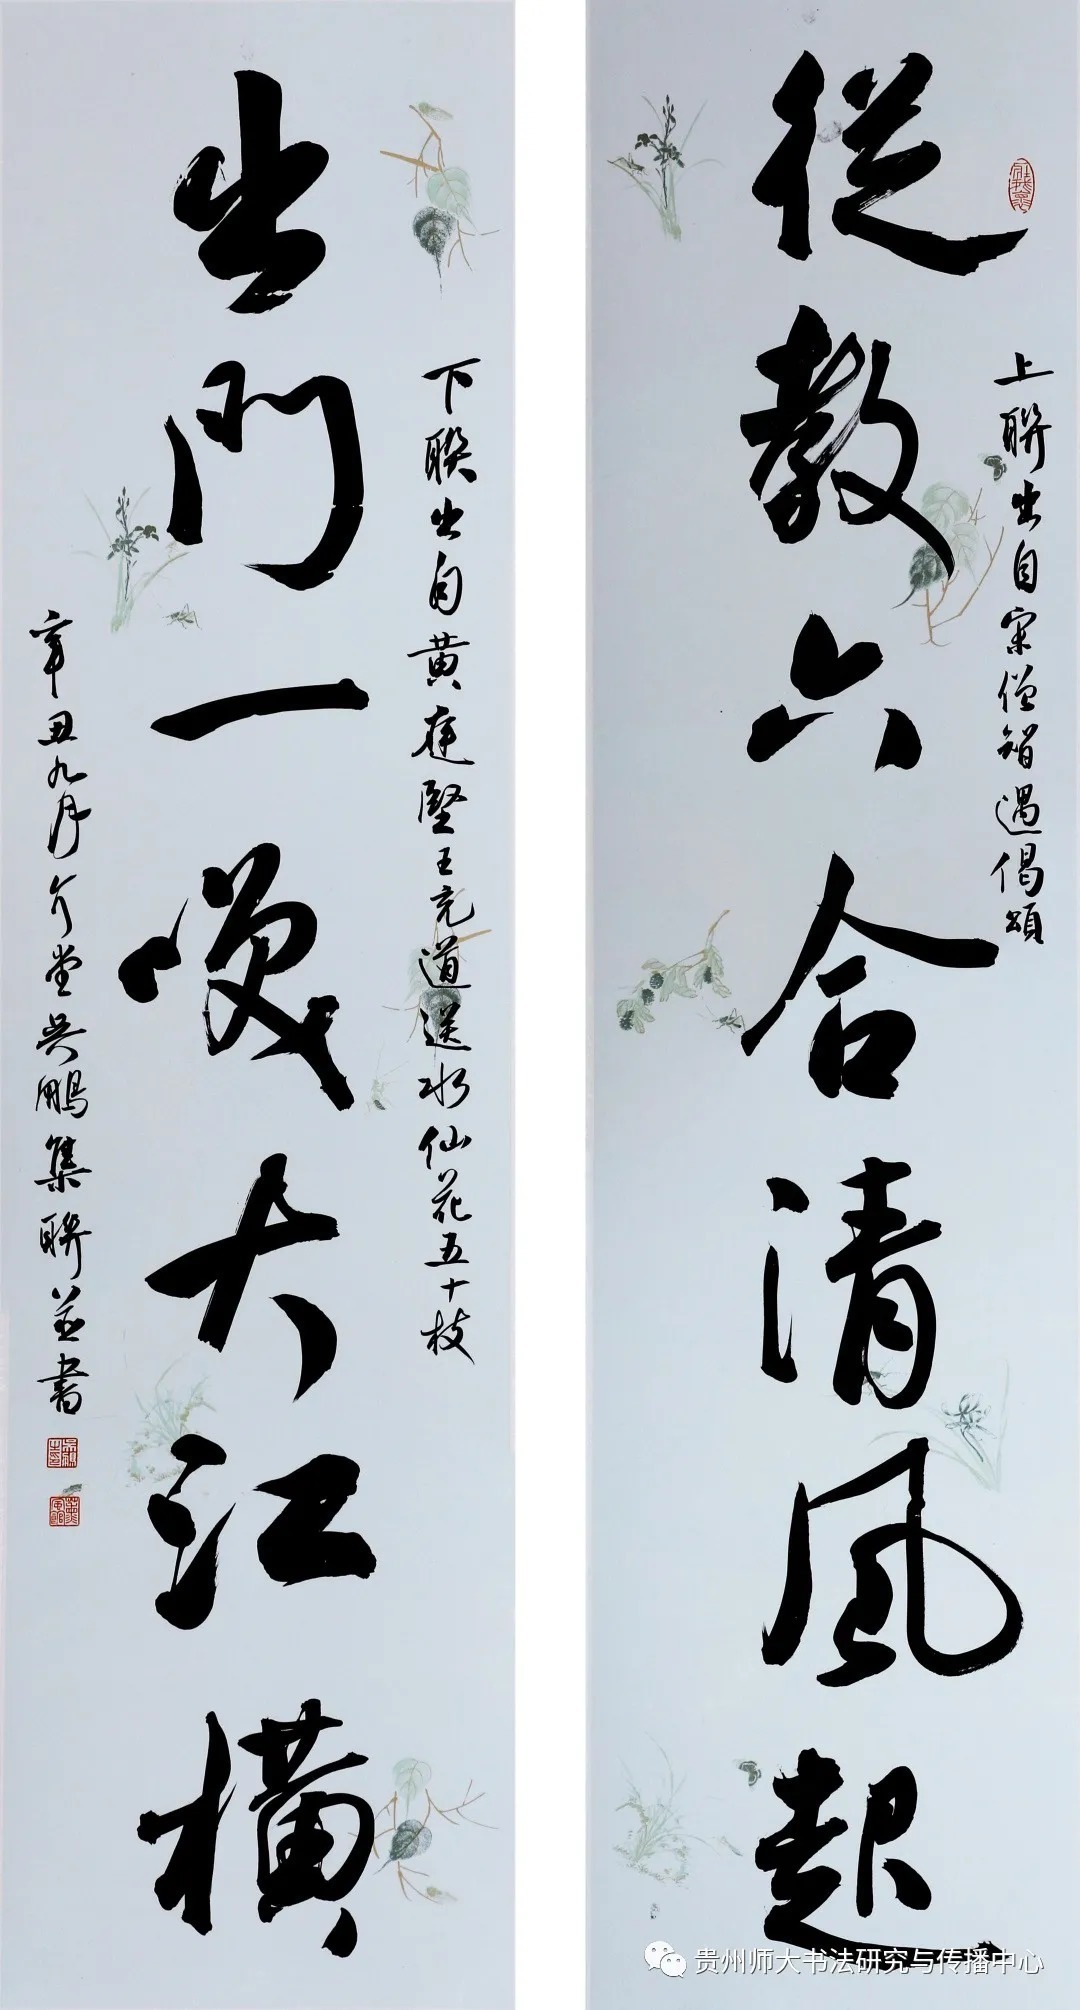 從教六合清風起
上聯出自宋僧智遇偈頌
出門一咲大江橫
下聯出自黄庭堅王充道送水仙花五十枝
辛丑九月介堂吳鵬集聯並書
贵州师大书法研究与传播中心